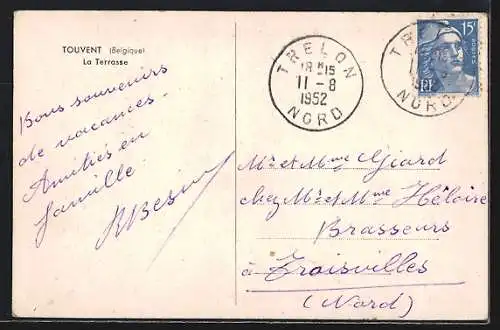 TOUVENT (Belgique)
La Terrasse
Bons souvenirs
de vacances.
Amitiés en
famille
TRELON
18H15
11-8
1952
NORD
TRE
NORD
15F
POSTES
RF
Mr et Mme Giard
chez Mr et Mme Héloire
Brasseurs
à Troisvilles
(Nord)